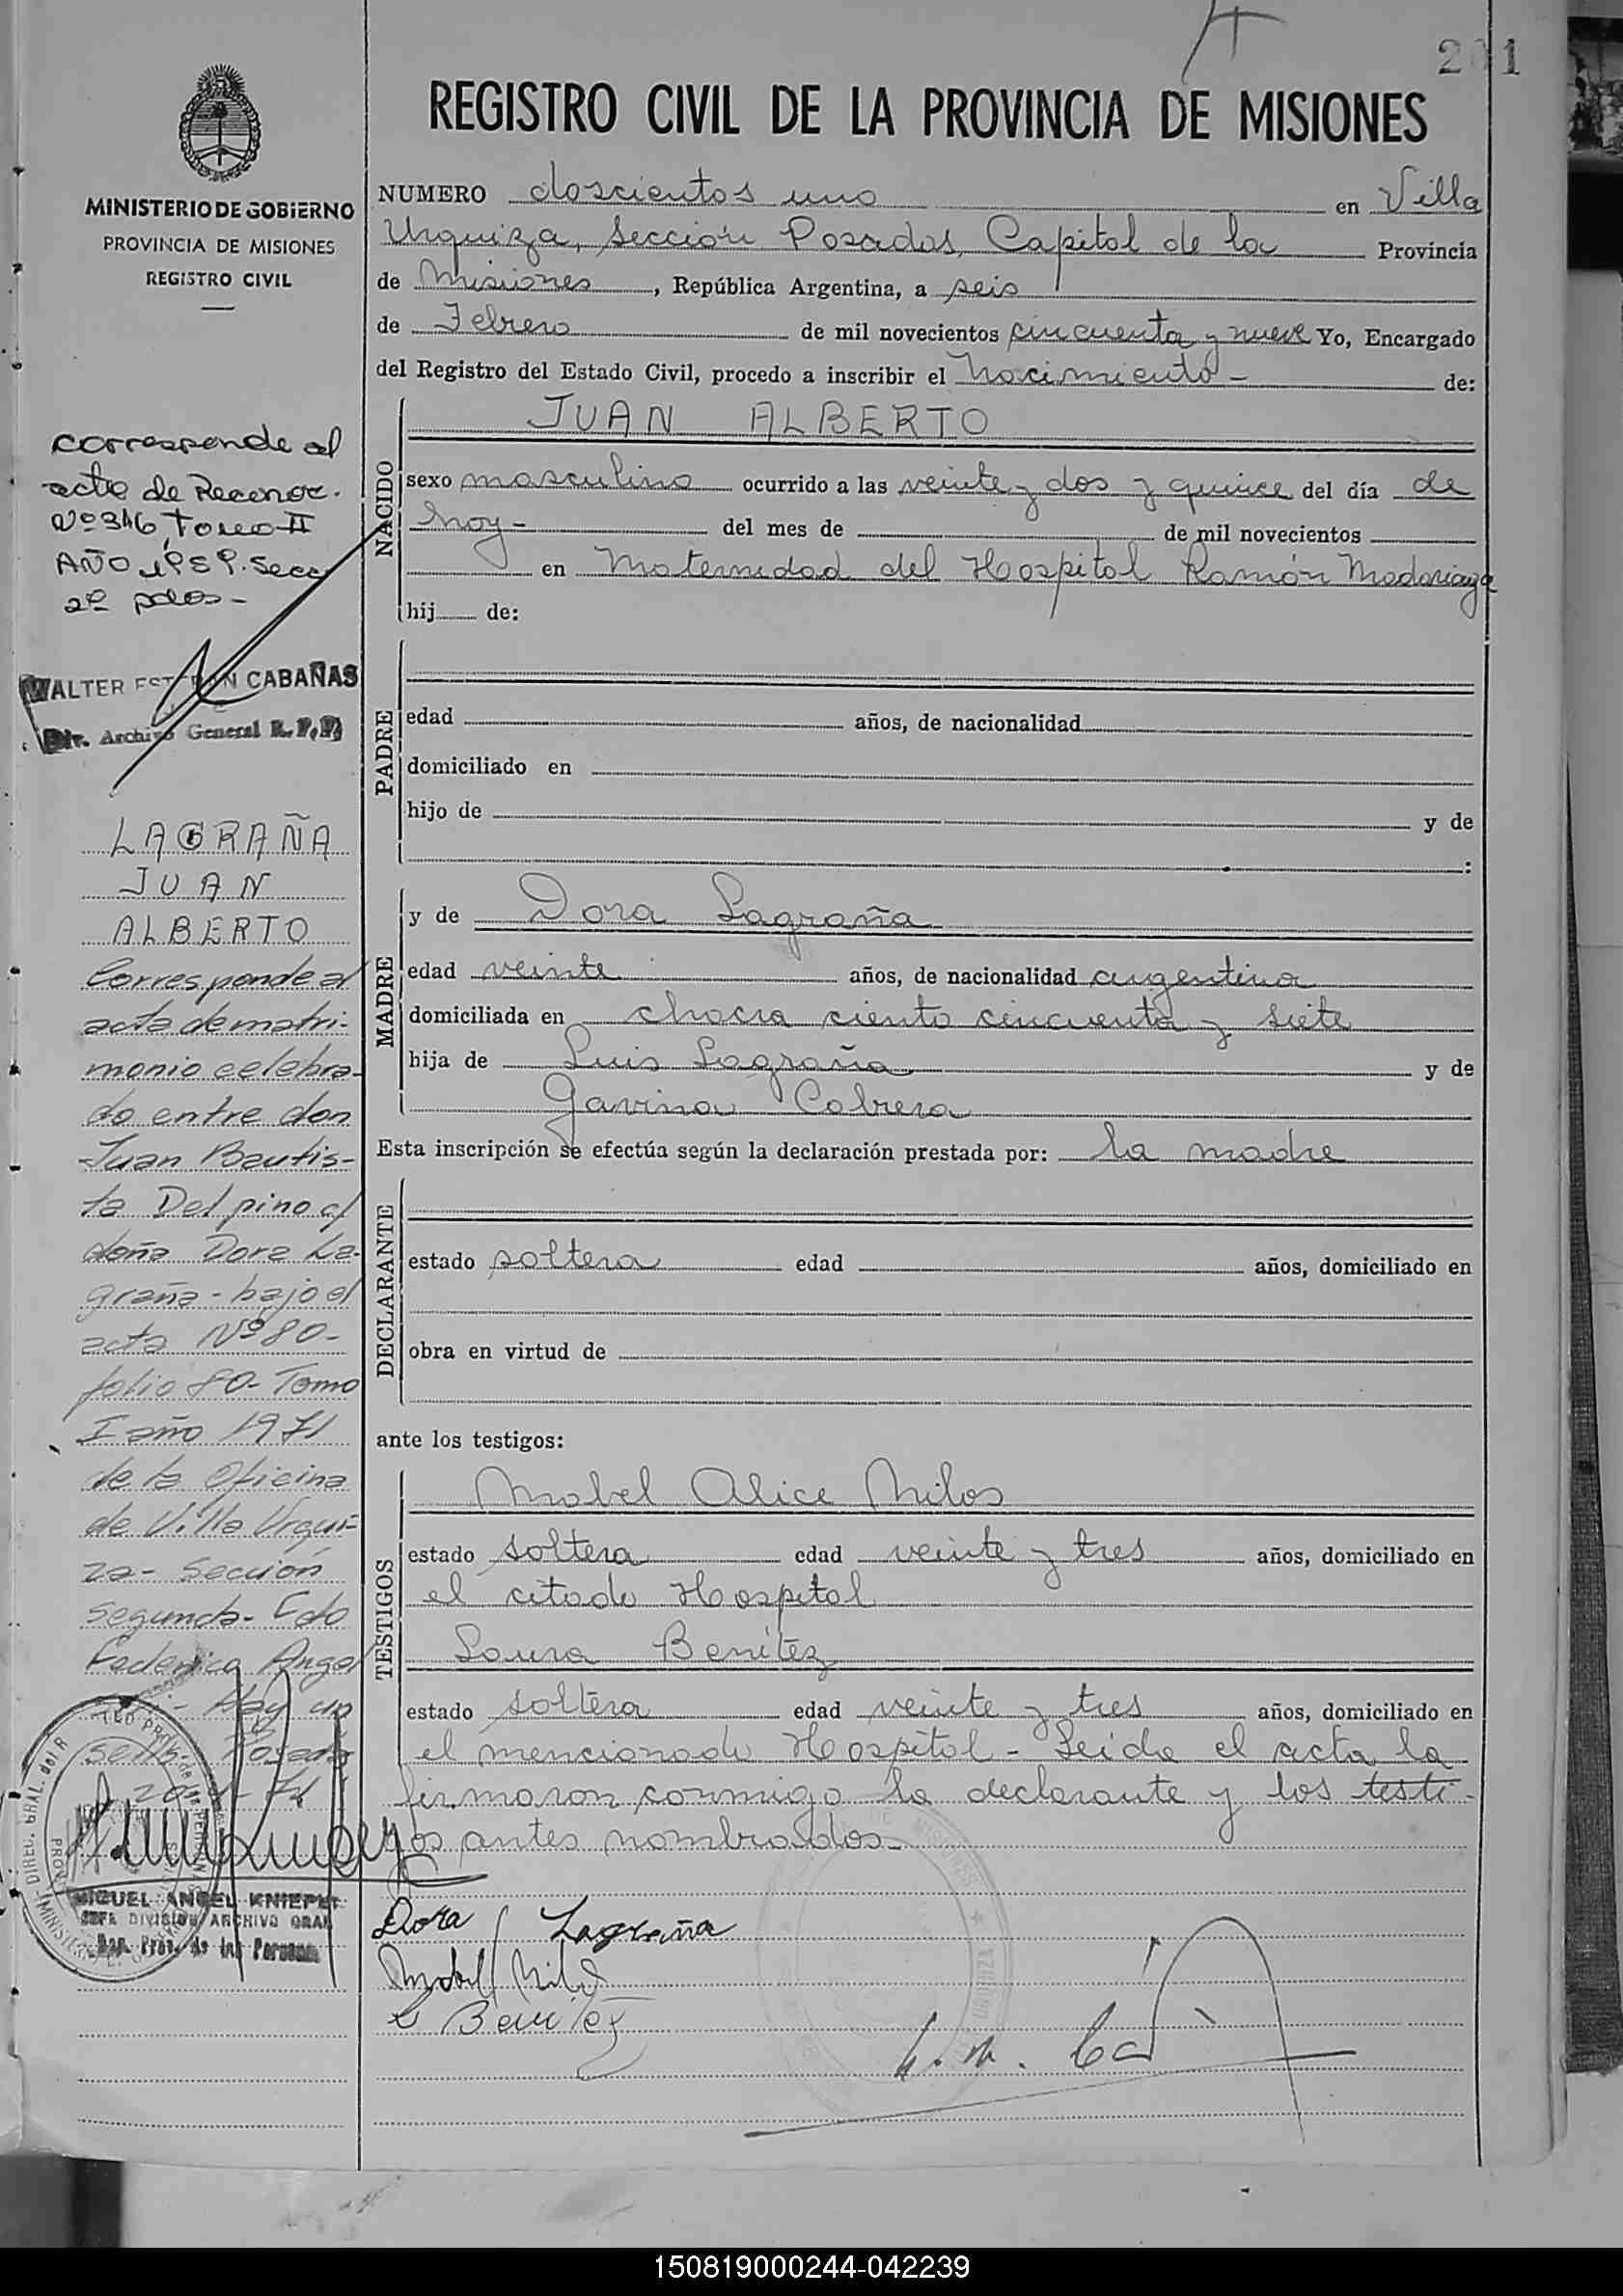 201
REGISTRO CIVIL DE LA PROVINCIA DE MISIONES
MINISTERIO DE GOBIERNO
PROVINCIA DE MISIONES
REGISTRO CIVIL
NUMERO doscientos uno en Villa
Urquiza, Sección Posadas, Capital de la Provincia
de Misiones, República Argentina, a seis
de Febrero de mil novecientos cincuenta y nueve Yo, Encargado
del Registro del Estado Civil, procedo a inscribir el Nacimiento - de:
NACIDO
JUAN ALBERTO
sexo masculino ocurrido a las veinte y dos y quince del día de
hoy - del mes de de mil novecientos
en Maternidad del Hospital Ramón Madariaga
hij de:
PADRE
edad años, de nacionalidad
domiciliado en
hijo de y de
:
MADRE
y de Dora Lagraña
edad veinte años, de nacionalidad argentina
domiciliada en chacra ciento cincuenta y siete
hija de Luis Lagraña y de
Gavina Cabrera
Esta inscripción se efectúa según la declaración prestada por: la madre
DECLARANTE
estado soltera edad años, domiciliado en
obra en virtud de
ante los testigos:
TESTIGOS
Mabel Alice Milos
estado soltera edad veinte y tres años, domiciliado en
el citado Hospital
Laura Benítez
estado soltera edad veinte y tres años, domiciliado en
el mencionado Hospital - Leida el acta la
firmaron conmigo la declarante y los testi-
gos antes nombrados -
Dora Lagraña
Mabel Milos
L Benítez
corresponde al
acta de Reconoc.
Nº 346, Tomo II
AÑO 1959. Secc
2º pdas -
WALTER ESTEBAN CABAÑAS
Div. Archivo General R.P.P.
LAGRAÑA
JUAN
ALBERTO
Corresponde al
acta de matri-
monio celebra-
do entre don
Juan Bautis-
ta Delpino c/
doña Dora La-
graña - bajo el
acta Nº 80 -
folio 80 - Tomo
I año 1971
de la Oficina
de Villa Urqui-
za - Sección
segunda - Fdo
Federico Angel
- Hay un
sello. Posadas
MIGUEL ANGEL KNIEPER
JEFE DIVISION ARCHIVO GRAL
150819000244-042239